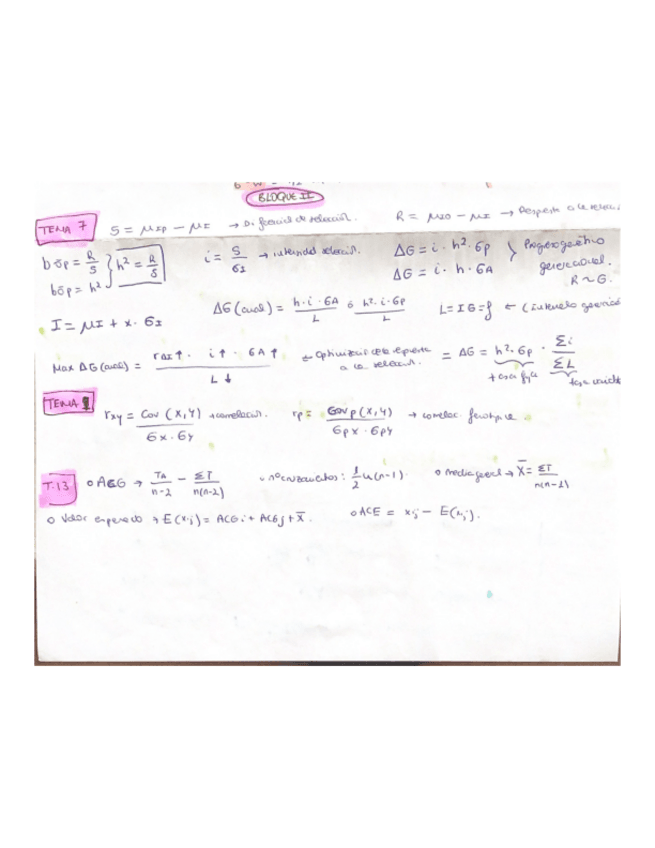 BLOQUE II
TEMA 7 S = μIP − μI → Diferencial de selección. R = μIO − μI → Respuesta a la selecc
bōp = R/S } h² = R/S i = S/σI → intensidad selección. ΔG = i · h² · σp } Progreso genético generacional.
bōp = h² ΔG = i · h · σA R ~ G.
I = μI + x · σI ΔG (anual) = h · i · σA / L ó h² · i · σp / L L = IG = f ← (Intervalo generac
Max ΔG (anual) = rAI↑ · i↑ · σA↑ / L↓ ← Optimización de la respuesta a la selección. = ΔG = h² · σp · Σi / ΣL
TEMA rxy = Cov (x,y) / σx · σy → correlación. rp = Cov p (x,y) / σpx · σpy → correlac. fenotípica
T.13 o ACG → TA / n−2 − ΣT / n(n−2) o nº cruzamientos: 1/2 n(n−1). o media general → X̄ = ΣT / n(n−1)
o Valor esperado → E(xij) = ACGi + ACGj + X̄. o ACE = xij − E(xij).